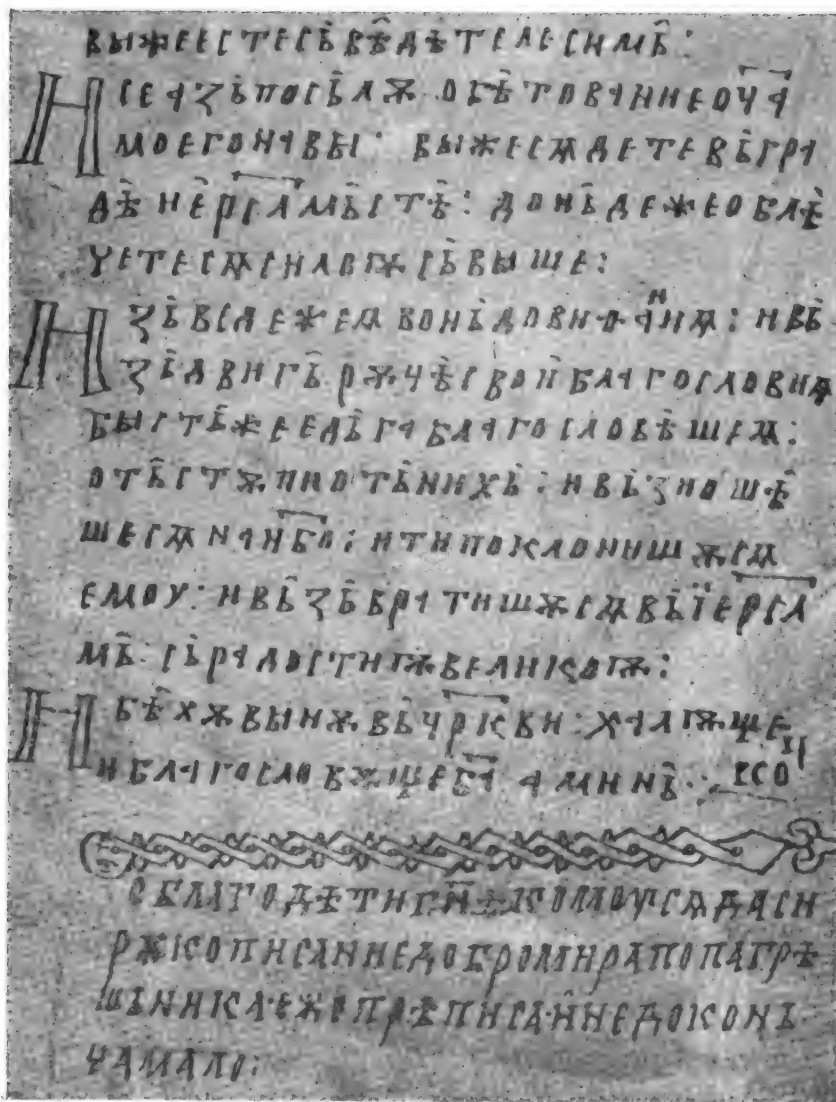 вꙑжеестесъвѣдѣтелесимъ:
И сеазъпосълѭ обѣтованиеоч҃а
моегонавꙑ· вꙑжесѧдетевъгра
дѣ иерс҃лмьстѣ: доньдежеоблѣ
четесѧсилоѭсъвꙑше:
И зъведежеѧвонъдовиѳаниѧ: ивъ
здвигъ рѫцѣсвои благословиѧ
бꙑстъжеегдаблагословѣшеѧ:
отъстѫпиотънихъ: ивъзношѣ
шесѧнанб҃о: итипоклонишѫсѧ
емоу: ивъзъвратишѫсѧвъїерс҃л
мъ· сърадостиѭвеликоѭ:
И бѣхѫвꙑнѫвъцр҃кви: хвалѧще
иблагословѧщеб҃а аминъ·: ксо҃ц
с благодѣтиѭ комоусѧдаси
рѫкописаниедобромирапопагрѣ
шъника·ежепрѣписаниедоконь
чамало: